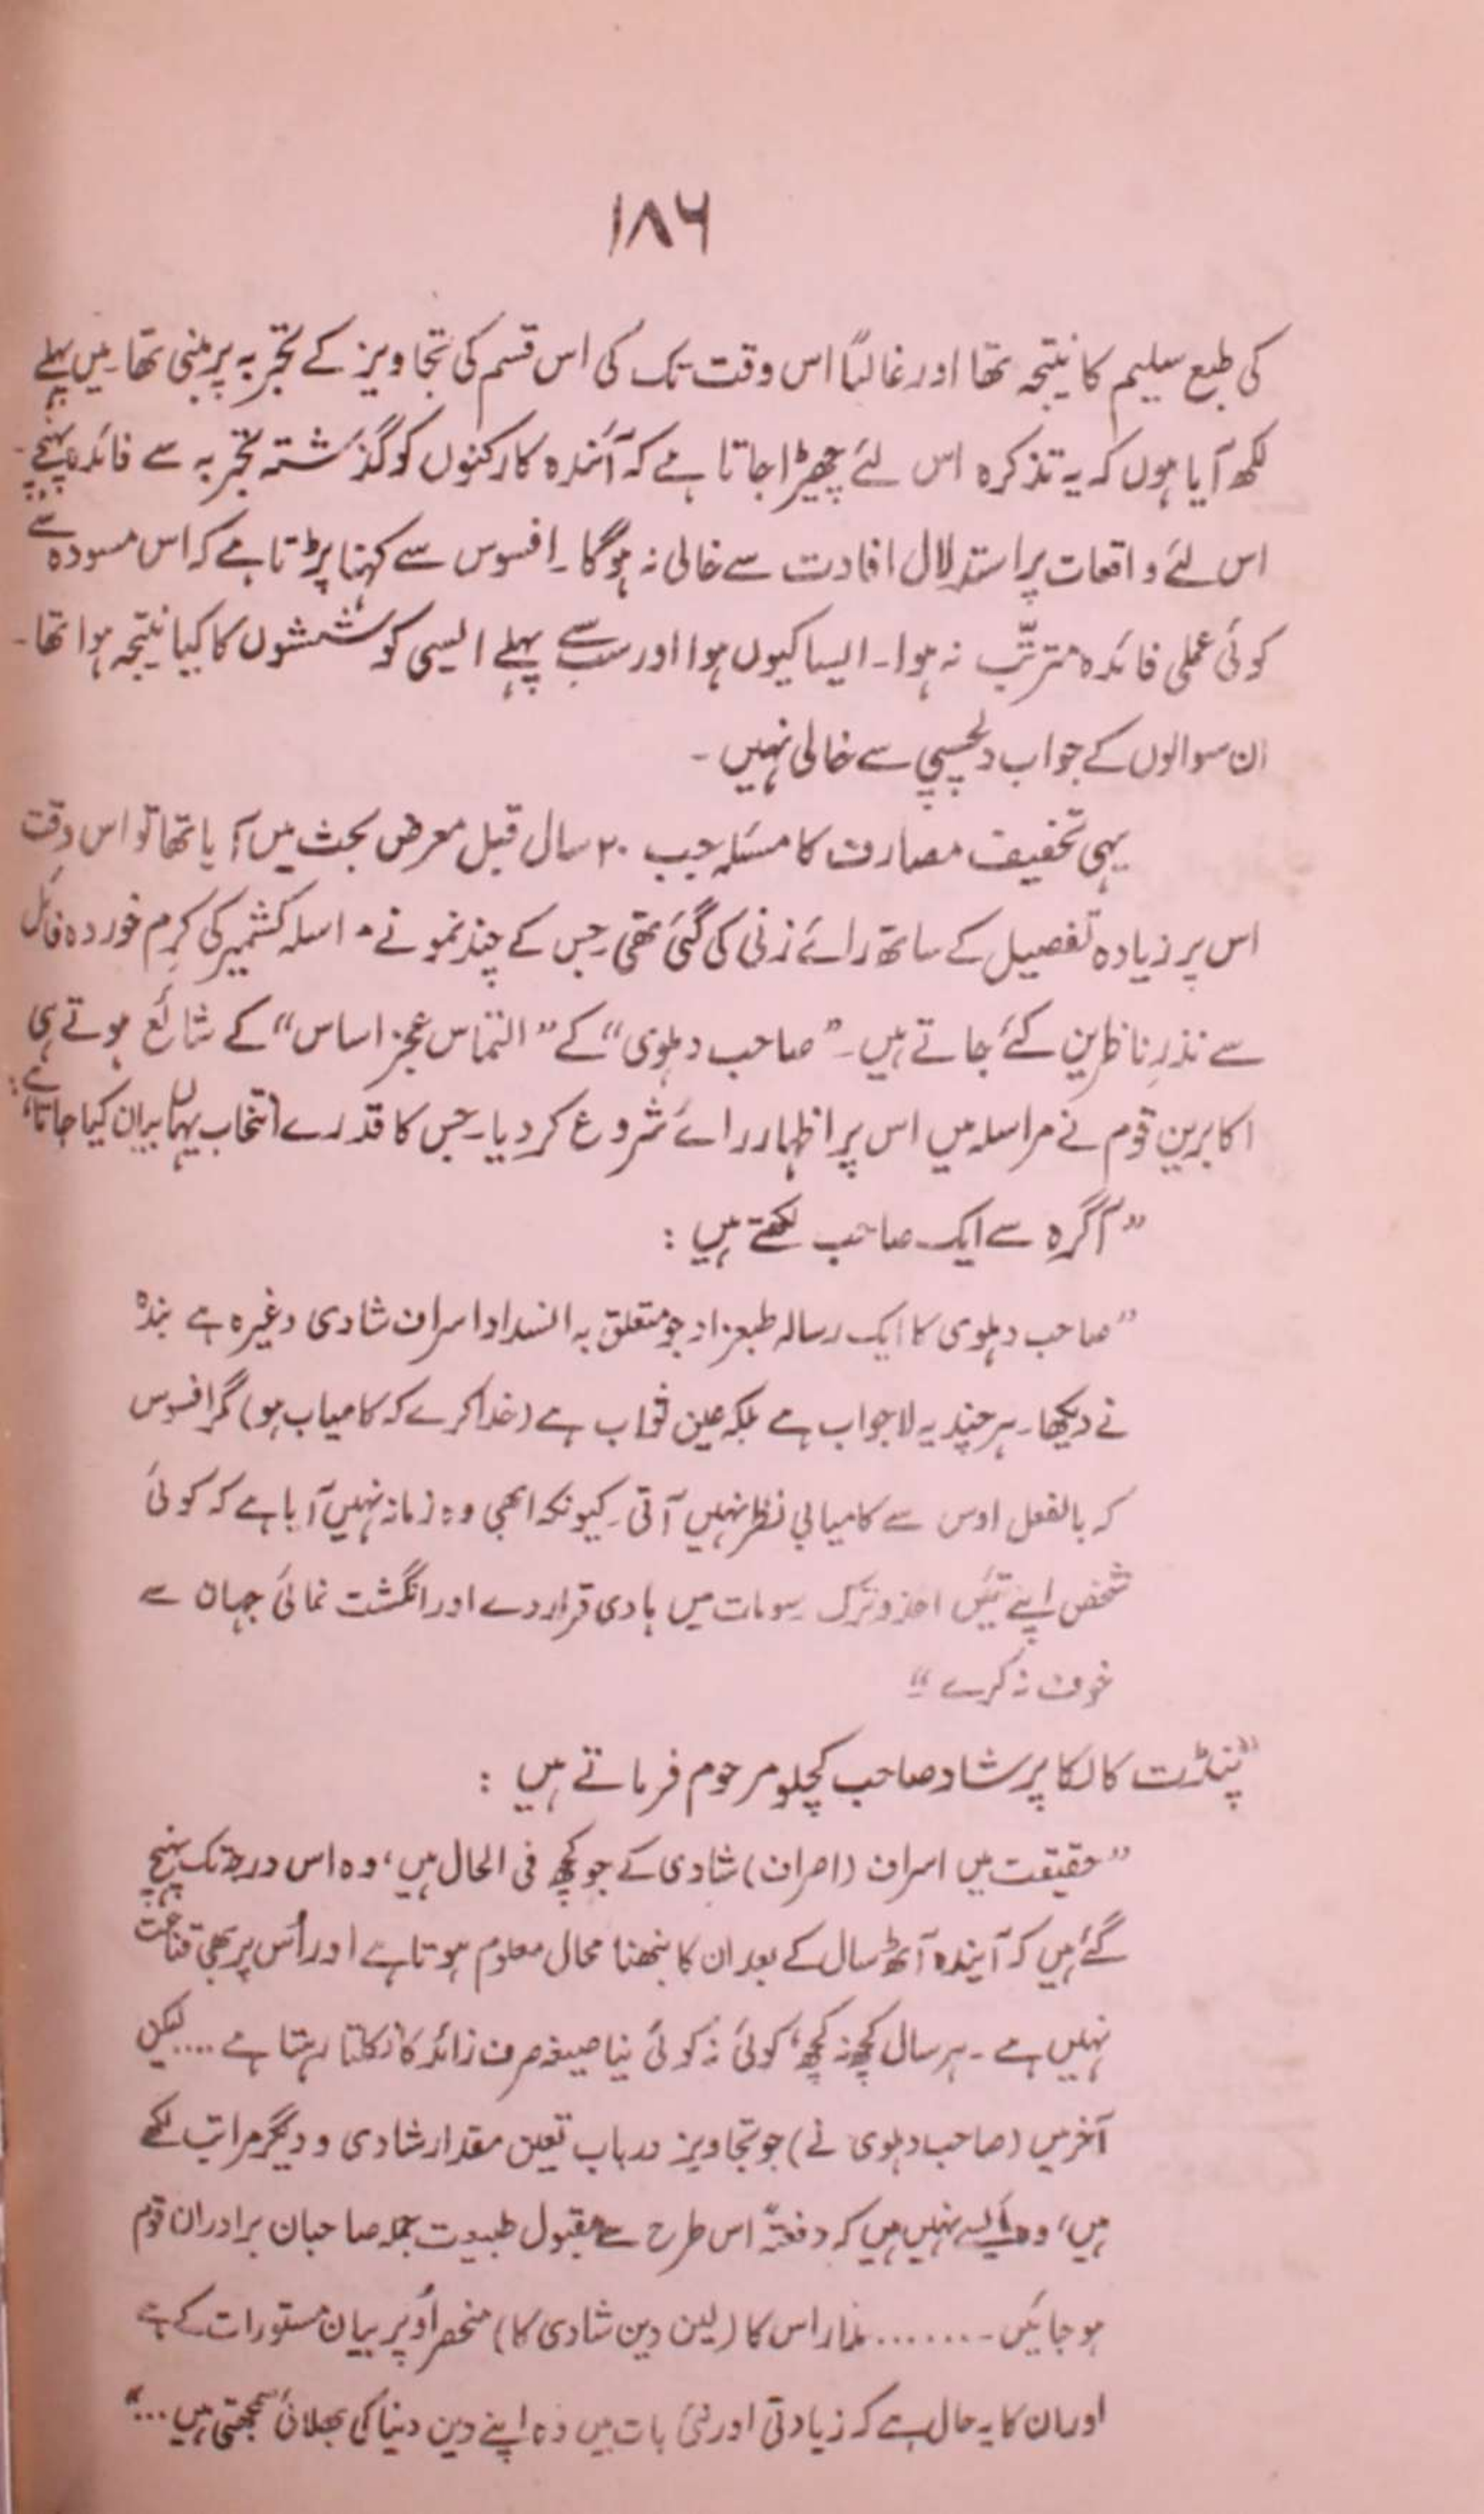 ۱۸۶
کی طبع سلیم کا نتیجہ تھا اور غالباً اس وقت تک کی اس قسم کی تجاویز کے تجربہ پر مبنی تھا۔ میں پہلے
لکھ آیا ہوں کہ یہ تذکرہ اس لئے چھیڑا جاتا ہے کہ آئندہ کارکنوں کو گذشتہ تجربہ سے فائدہ پہنچے۔
اس لئے واقعات پر استدلال افادت سے خالی نہ ہوگا۔ افسوس سے کہنا پڑتا ہے کہ اس مسودہ سے
کوئی عملی فائدہ مترتّب نہ ہوا۔ ایسا کیوں ہوا اور سب سے پہلے ایسی کوششوں کا کیا نتیجہ ہوا تھا۔
ان سوالوں کے جواب دلچسپی سے خالی نہیں۔
یہی تخفیف مصارف کا مسئلہ جب ۲۰ سال قبل معرض بحث میں آیا تھا تو اس وقت
اس پر زیادہ تفصیل کے ساتھ رائے زنی کی گئی تھی۔ جس کے چند نمونے مراسلہ کشمیر کی کرم خوردہ فائل
سے نذرِ ناظرین کئے جاتے ہیں۔ ”صاحب دہلوی“ کے ”التماس عجز اساس“ کے شائع ہوتے ہی
اکابرینِ قوم نے مراسلہ میں اس پر اظہار رائے شروع کر دیا۔ جس کا قدرے انتخاب یہاں بیان کیا جاتا ہے:
”آگرہ سے ایک صاحب لکھتے ہیں :
”صاحب دہلوی کا ایک رسالہ طبعزاد جو متعلق بہ انسداد اسراف شادی وغیرہ ہے بندہ
نے دیکھا۔ ہر چند یہ لاجواب ہے بلکہ عین ثواب ہے (خدا کرے کہ کامیاب ہو) مگر افسوس
کہ بالفعل اوس سے کامیابی نظر نہیں آتی۔ کیونکہ ابھی وہ زمانہ نہیں آیا ہے کہ کوئی
شخص اپنے تئیں اخذ و ترک رسومات میں ہادی قرار دے اور انگشت نمائی جہان سے
خوف نہ کرے“
”پنڈت کالکا پرشاد صاحب کچلو مرحوم فرماتے ہیں :
”حقیقت میں اسراف (اصراف) شادی کے جو کچھ فی الحال ہیں، وہ اس درجہ تک پہنچ
گئے ہیں کہ آیندہ آٹھ سال کے بعد ان کا نبھنا محال معلوم ہوتا ہے اور اُس پر بھی قناعت
نہیں ہے۔ ہر سال کچھ نہ کچھ، کوئی نہ کوئی نیا صیغہ صرف زائد کا نکلتا رہتا ہے .... لیکن
آخر میں (صاحب دہلوی نے) جو تجاویز درباب تعین مقدار شادی و دیگر مراتب لکھے
ہیں، وہ ایسے نہیں ہیں کہ دفعتہً اس طرح سے مقبول طبیعت جملہ صاحبان برادران قوم
ہو جائیں۔....... مدار اس کا (لین دین شادی کا) منحصر اُوپر بیان مستورات کے ہے
اور ان کا یہ حال ہے کہ زیادتی اور نئی بات میں وہ اپنے دین دنیا کی بھلائی سمجھتی ہیں ...“